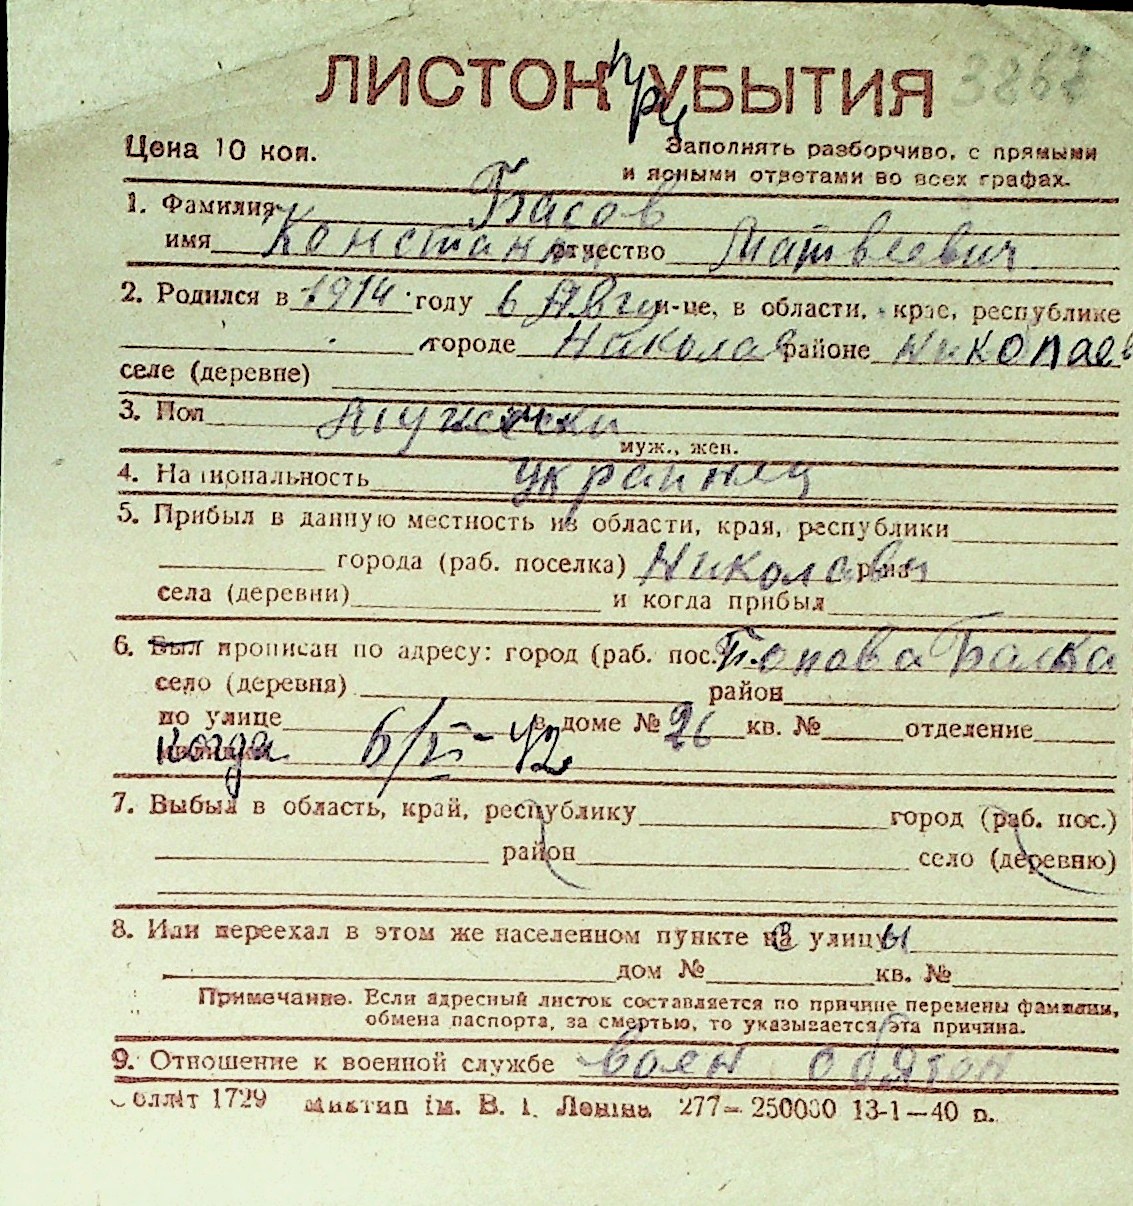 ЛИСТОК при УБЫТИЯ 3867
Цена 10 коп. Заполнять разборчиво, с прямыми
и ясными ответами во всех графах.
1. Фамилия Басов
имя Константин отчество Матвеевич
2. Родился в 1914 году 6 Авгу м-це, в области, крае, республике
городе Николаев районе Николаев
селе (деревне)
3. Пол Мужески
муж., жен.
4. Национальность украинец
5. Прибыл в данную местность из области, края, республики
города (раб. поселка) Николаев р-на
села (деревни) и когда прибыл
6. Был прописан по адресу: город (раб. пос.) Попова Балка
село (деревня) район
по улице в доме № 26 кв. № отделение
когда 6/VI-42
7. Выбыл в область, край, республику город (раб. пос.)
район село (деревню)
8. Или переехал в этом же населенном пункте на с улицу ы
дом № кв. №
Примечание. Если адресный листок составляется по причине перемены фамилии,
обмена паспорта, за смертью, то указывается эта причина.
9. Отношение к военной службе воен обязан
Облліт 1729 Миктип ім. В. І. Леніна 277—250000 13-1—40 р.